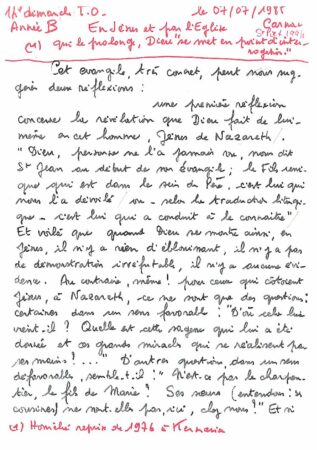 14e dimanche T.O. le 07/07/1985
Année B En Jésus et par l'Eglise Carnac
(1) qui le prolonge, Dieu "se met en point d'inter-
rogation."
Cet évangile, très connu, peut nous sug-
gérer deux réflexions :
une première réflexion
concerne la révélation que Dieu fait de lui-
même en cet homme, Jésus de Nazareth.
"Dieu, personne ne l'a jamais vu, nous dit
St Jean au début de son évangile ; le Fils uni-
que qui est dans le sein du Père, c'est lui qui
nous l'a dévoilé ou - selon la traduction liturgi-
que - c'est lui qui a conduit à le connaître"
Et voilà que quand Dieu se montre ainsi, en
Jésus, il n'y a rien d'éblouissant, il n'y a pas
de démonstration irréfutable, il n'y a aucune évi-
dence. Au contraire, même ! pour ceux qui côtoient
Jésus, à Nazareth, ce ne sont que des questions :
certaines dans un sens favorable : "D'où cela lui
vient-il ? Quelle est cette sagesse qui lui a été
donnée et ces grands miracles qui se réalisent par
ses mains ? ..." D'autres questions, dans un sens
défavorable, semble-t-il : "N'est-ce pas le charpen-
tier, le fils de Marie ? Ses sœurs (entendons : ses
cousines) ne sont-elles pas, ici, chez nous ?" Et si
(1) Homélie reprise de 1976 à Kermaria